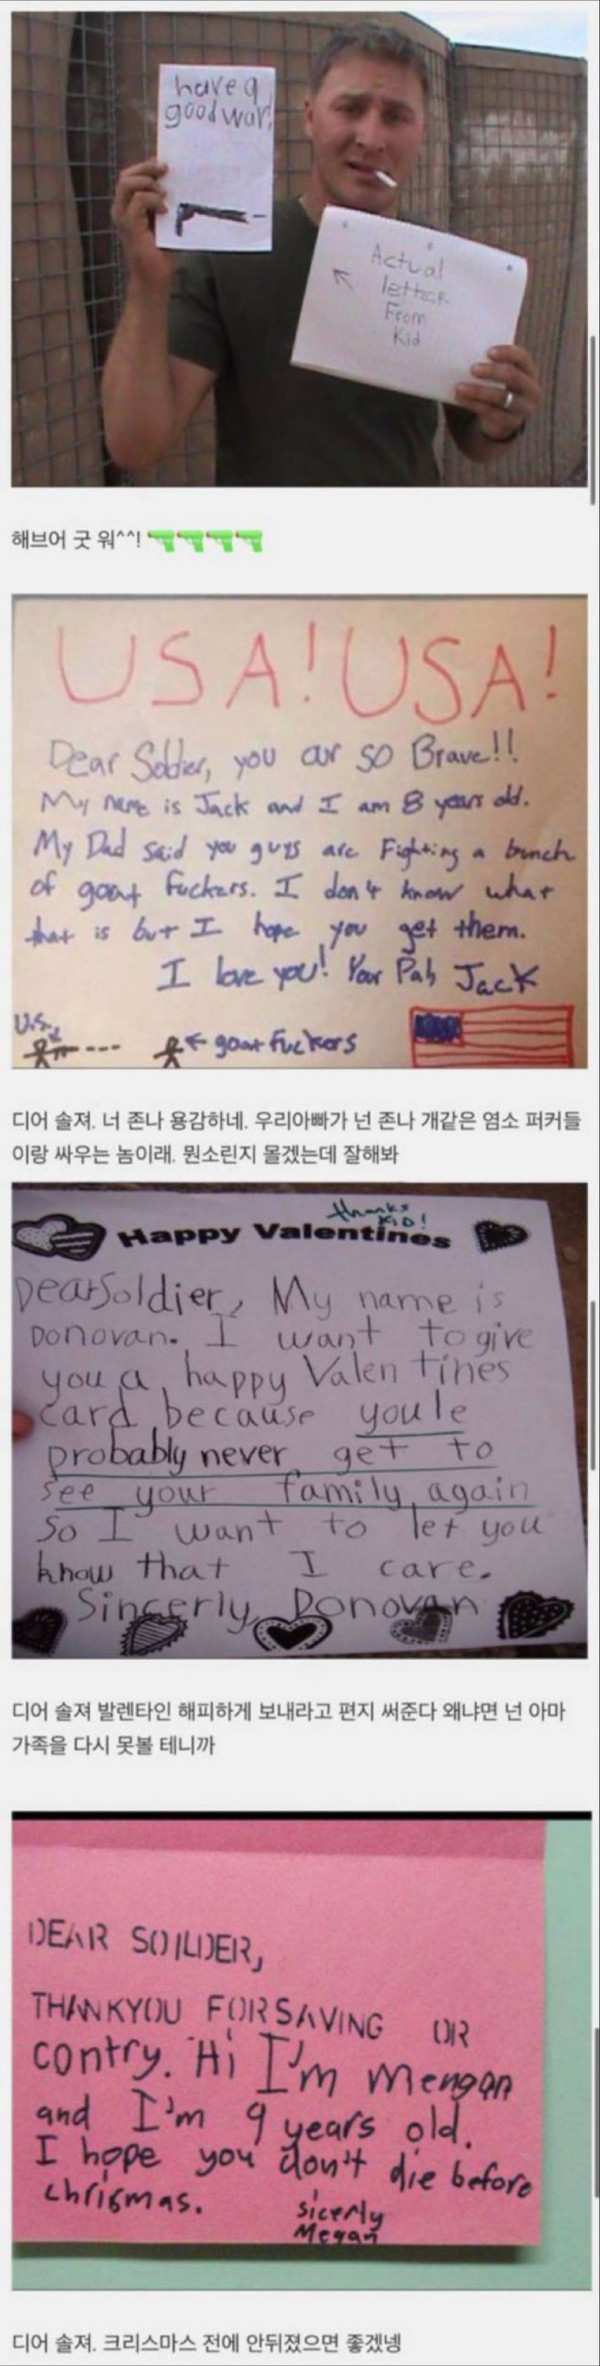 have a
good war,
Actual
letter
From
Kid
해브어 굿 워^^! 🔫🔫🔫🔫
USA! USA!
Dear Soldier, you our so Brave!!
My name is Jack and I am 8 years old.
My Dad said you guys are Fighting a bunch
of goat Fuckers. I don't know what
that is but I hope you get them.
I love you! Your Pal, Jack
U.S.
goat Fuckers
디어 솔져. 너 존나 용감하네. 우리아빠가 넌 존나 개같은 염소 퍼커들
이랑 싸우는 놈이래. 뭔소린지 몰겠는데 잘해봐
thanks
KID!
Happy Valentines
Dear Soldier, My name is
Donovan. I want to give
you a happy Valentines
card because youle
probably never get to
see your family again
so I want to let you
know that I care.
Sincerly, Donovan
디어 솔져 발렌타인 해피하게 보내라고 편지 써준다 왜냐면 넌 아마
가족을 다시 못볼 테니까
DEAR SOILDER,
THANKYOU FOR SAVING OR
contry. Hi I'm Mengan
and I'm 9 years old.
I hope you don't die before
chrismas.
sicerly
Megan
디어 솔져. 크리스마스 전에 안뒤졌으면 좋겠넹